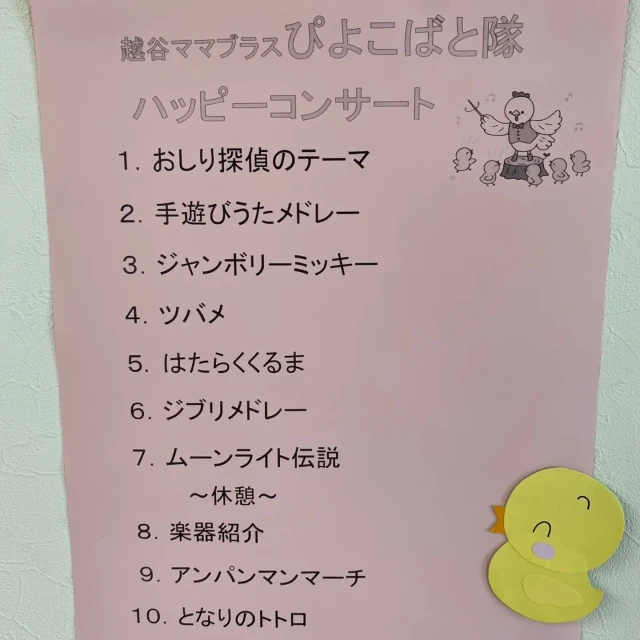 越谷ママブラスぴよこばと隊
ハッピーコンサート
1. おしり探偵のテーマ
2. 手遊びうたメドレー
3. ジャンボリーミッキー
4. ツバメ
5. はたらくくるま
6. ジブリメドレー
7. ムーンライト伝説
～休憩～
8. 楽器紹介
9. アンパンマンマーチ
10. となりのトトロ